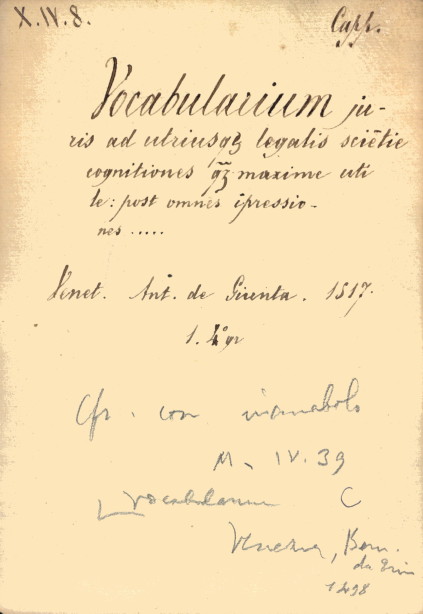 X. IV. 8.
Capp.
Vocabularium ju-
ris ad utriusqꝫ legalis sciētie
cognitiones qꝫ maxime uti
le: post omnes īpressio-
nes .....
Venet. Ant. de Giunta. 1517.
1. 4º gr
Cfr. con incunabolo
M. IV. 39
Vocabularium C
Venezia, Bern.
da
1498